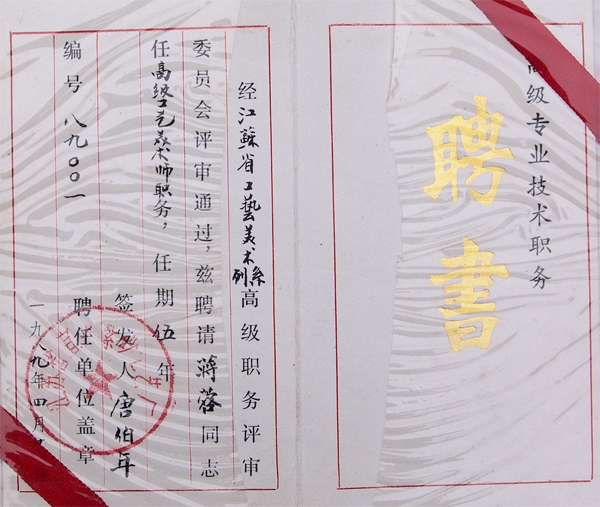 高级专业技术职务
聘书
经江蘇省工藝美术系列高级职务评审
委员会评审通过，兹聘请蒋蓉同志
任高级工艺美术师职务，任期伍年
编号八九〇〇一
签发人唐伯年
聘任单位盖章
一九八九年四月